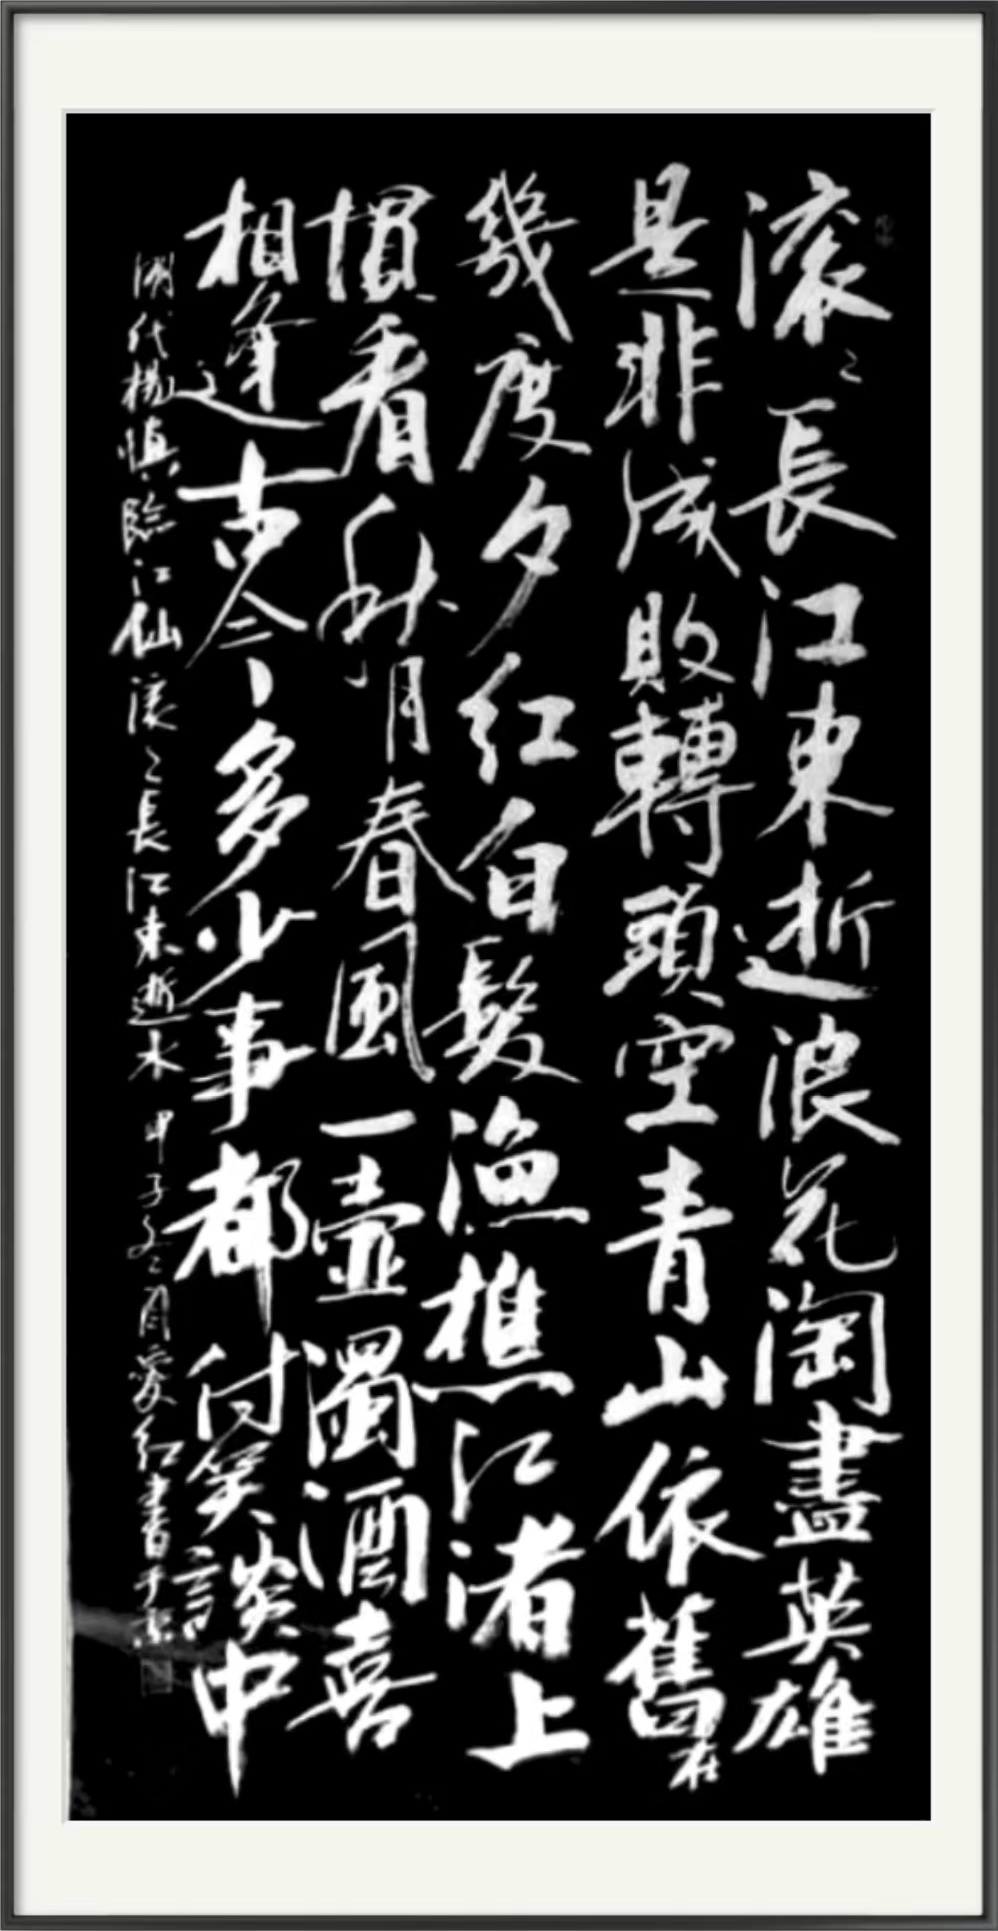 滚〻長江東逝浪花淘盡英雄
是非成敗轉頭空青山依舊在
幾度夕红白髮渔樵江渚上
慣看秋月春風一壺濁酒喜
相逢古今多少事都付笑談中
明代楊慎臨江仙滚〻長江東逝水 甲子冬月愛红書于